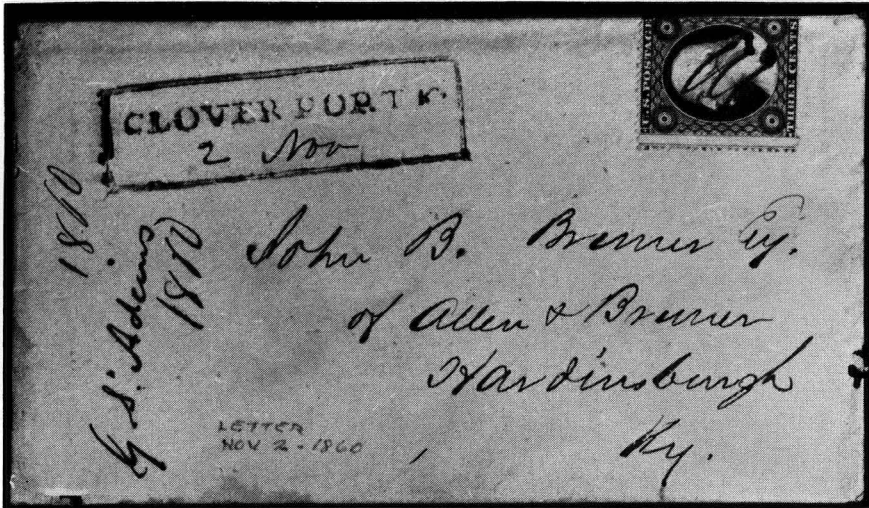 CLOVERPORT K
2 Nov
U.S. POSTAGE
THREE CENTS
1860
G. S. Adams
1860
John B. Bremer Esq.
of Allen & Bremer
Hardinsburgh
Ky.
LETTER
NOV 2 - 1860